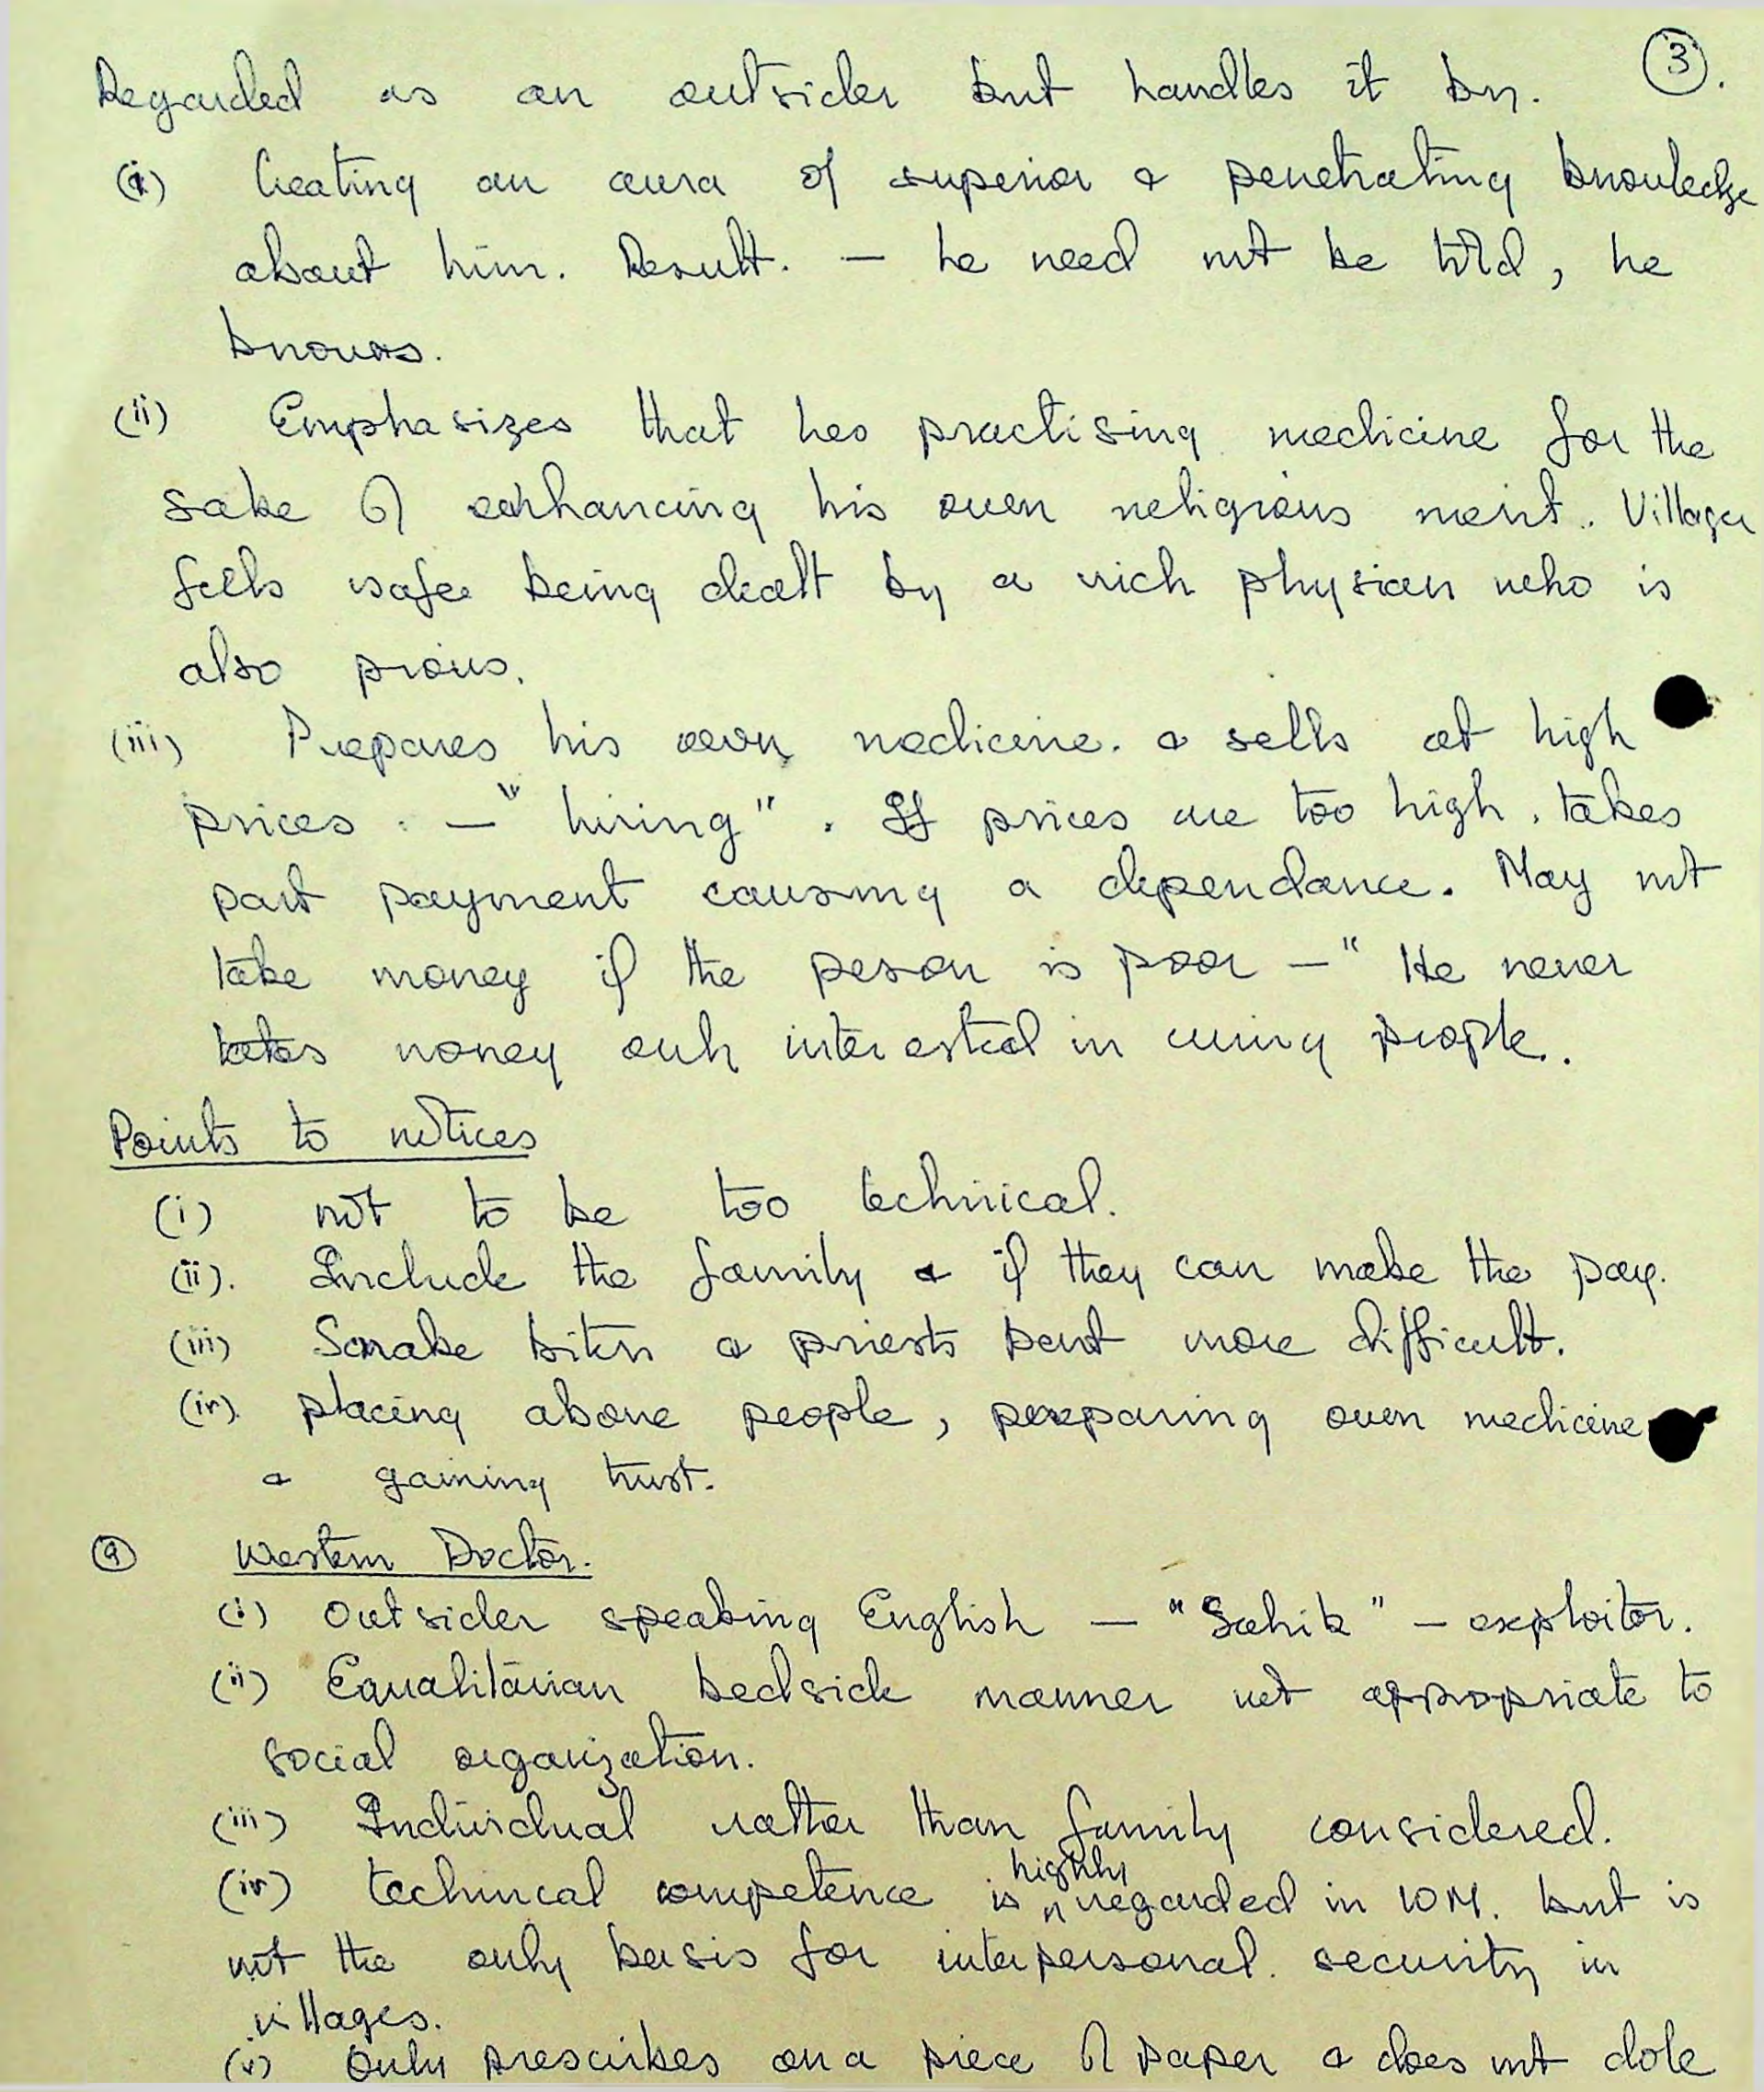 Regarded as an outsider but handles it by. (3).
(i) Creating an aura of superior & penetrating knowledge
about him. Result. — he need not be told, he
knows.
(ii) Emphasizes that hes practising medicine for the
sake of enhancing his own religious merit. Villager
feels safer being dealt by a rich physian who is
also pious.
(iii) Prepares his own medicine. & sells at high
prices : — "hiring". If prices are too high, takes
part payment causing a dependance. May not
take money if the peson is poor — "He never
takes money only interested in curing people..
Points to notices
(i) not to be too technical.
(ii). Include the family & if they can make the pay.
(iii) Snake biten & priests part more difficult.
(iv). placing above people, preparing own medicine
& gaining trust.
(9) Western Doctor.
(i) Outsider speaking English — "Sahib" — exploitor.
(ii) Equalitarian bedside manner not appropriate to
social organization.
(iii) Individual rather than family considered.
highly
(iv) technical competence is regarded in WM. but is
not the only basis for interpersonal. security in
villages.
(v) Only prescribes on a piece of paper & does not dole